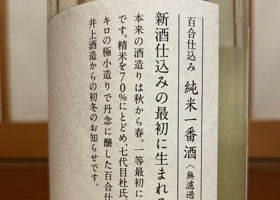 百合仕込み 純米一番酒〈無濾過
新酒仕込みの最初に生まれる
本来の酒造りは秋から春。一等最初に
です。精米を70%にとどめ、七代目杜氏
キロの極小造りで丹念に醸した百合仕
井上酒造からの初冬のお知らせです。